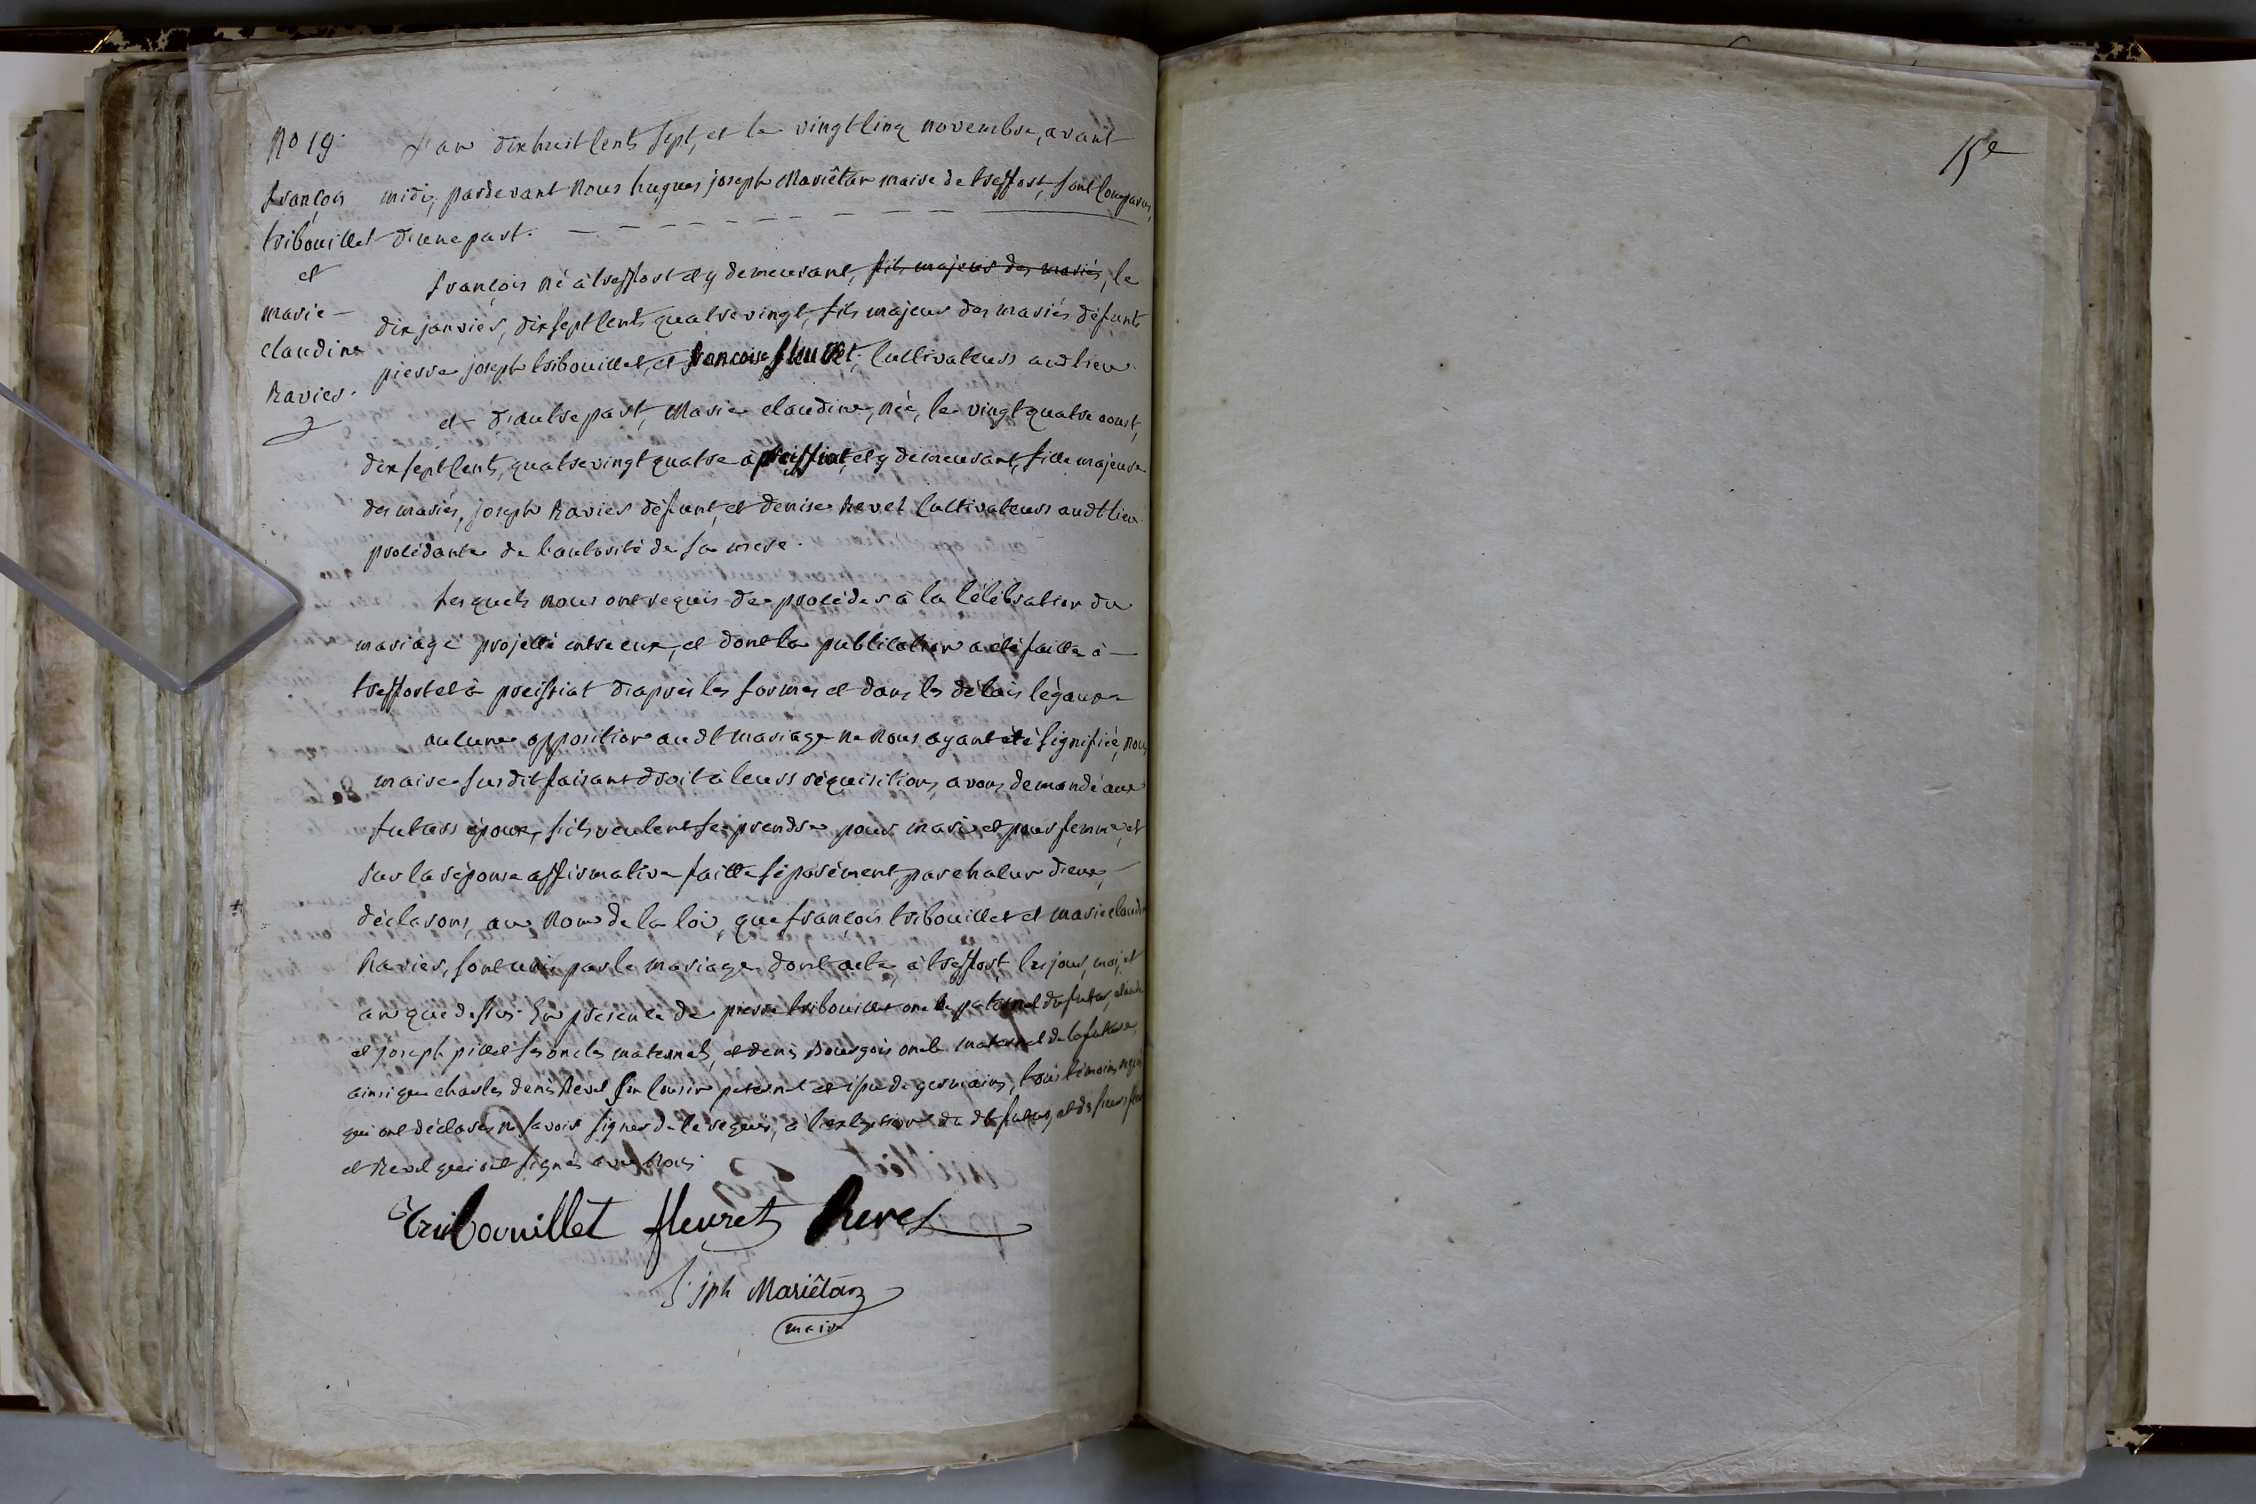 No 19.
françois
tribouillet
et
marie
claudine
Ravier.
L'an dixhuit cents sept, et le vingt cinq novembre, avant
midi, pardevant Nous hugues joseph Mariêtan maire de treffort, sont comparus,
d'une part.
françois né à treffort et y demeurant, fils majeur des mariés, le
dix janvier, dix sept cents quatre vingt, fils majeur des mariés défunts
pierre joseph tribouillet, et françoise fleuret, cultivateurs audt lieu.
et d'autre part, Marie claudine, née, le vingt quatre aoust,
dix sept cents, quatre vingt quatre à preissiat, et y demeurant, fille majeure
des mariés, joseph Ravier défunt, et denise Revel cultivateurs audt lieu
procédante de l'autorité de sa mere.
Lesquels nous ont requis de procéder à la célébration du
mariage projetté entre eux, et dont la publication a été faitte à
treffort et à preissiat d'après les formes et dans les délais légaux
aucune opposition audt mariage ne nous ayant été signifiée, nous
maire susdit faisant droit à leurs réquisitions, avons demandé aux
futurs époux, s'ils veulent se prendre pour mari et pour femme, et
sur la réponse affirmative faitte séparément, par chacun d'eux,
déclarons, au Nom de la loi, que françois tribouillet et marie claudine
Ravier, sont unis par le mariage, dont acte, à treffort, les jour, mois, et
an que dessus. En présence de pierre tribouillet oncle paternel du futur, claude
et joseph pillet ses oncles maternels, et denis Bourgois oncle maternel de la future,
ainsi que charles denis Revel son cousin paternel et issu de germains, tous témoins requis
qui ont déclaré ne savoir signer de ce requis, à l'exception du dt futur, et des sieurs fleuret
et Revel qui ont signés avec Nous.
Tribouillet fleuret Revel
h. jph Mariêtan
maire
15e